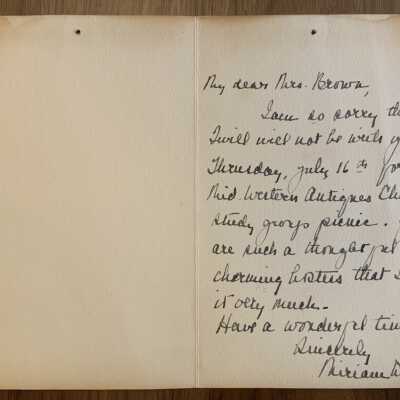 My dear Mrs. Brown,
I am so sorry th
I will will not be with y
Thursday, July 16th for
Mid. Western Antiques Ch
study group picnic.
are such a thoughtful
charming hostess that I
it very much -
Have a wonderful tim
Sincerely
Miriam